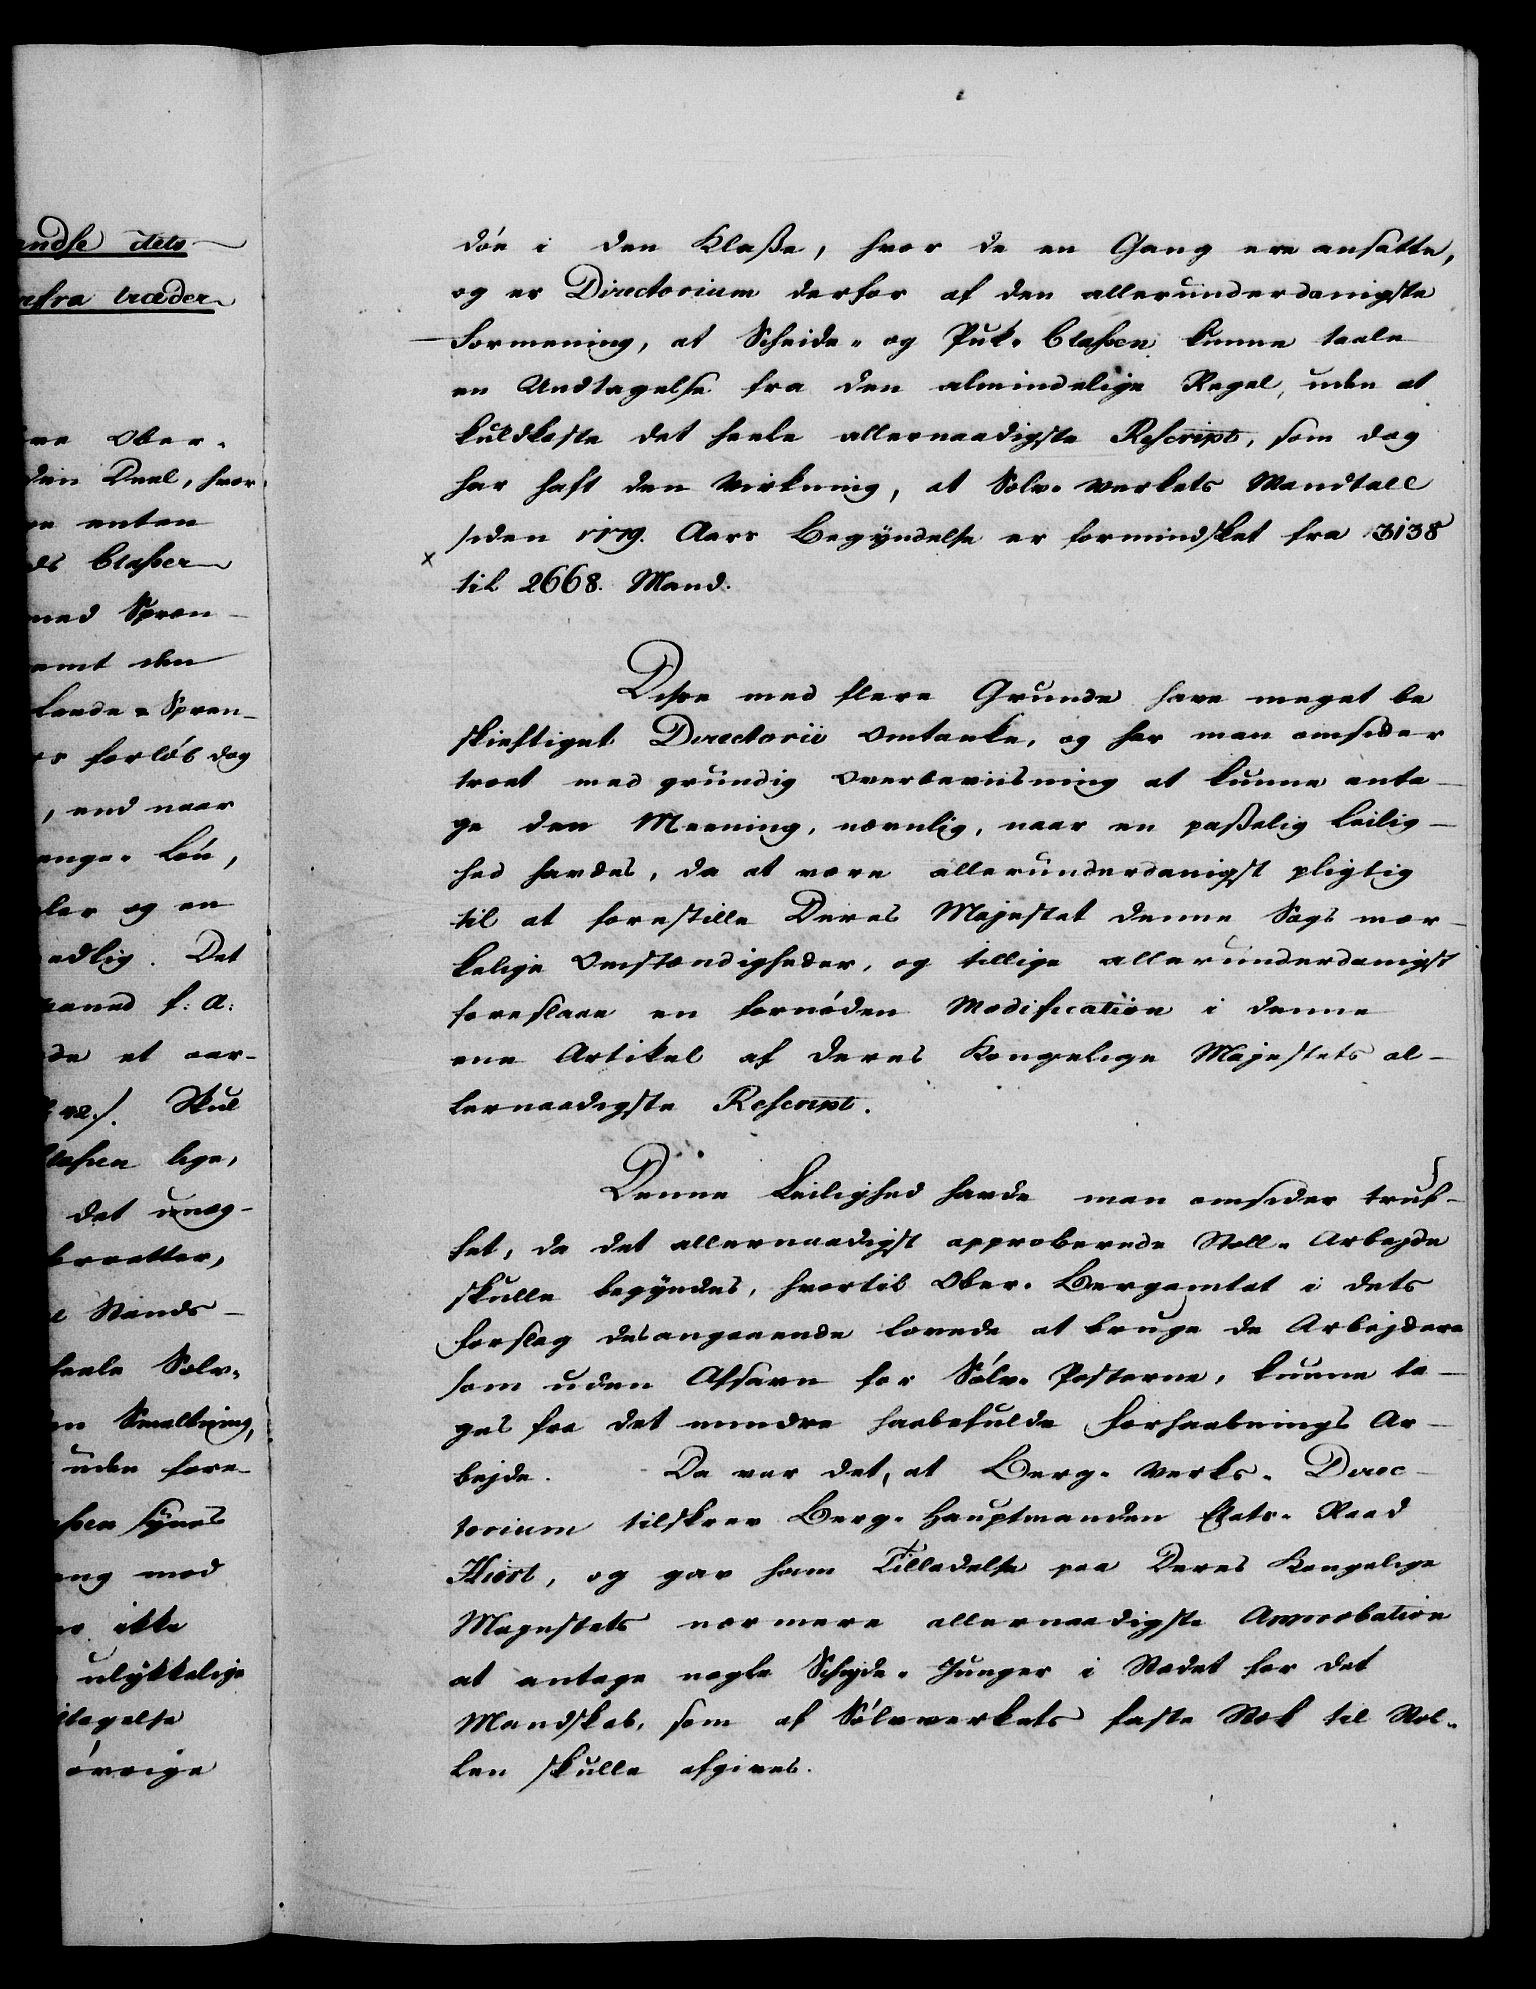 andse dets
rfra træder
ere Ober-
den Deel, hvor
ge enten
ds Classer
med Spren-
samt den
Leede- Spren-
rs forløb dog
, end naar
enge- Løn,
ler og en
edlig. Det
maaned f: A:
de et aar-
Skul
Classen lige,
det unæg-
krætter,
Stands-
heele Sølv-
en Smeltning,
uden fore-
assen synes
eng med
ikke
ulykkelige
dtagelse
øvrige
døe i den Klaße, hvor de en Gang ere ansatte,
og er Directorium derfor af den allerunderdanigste
Formening, at Scheide- og Puk- Classen kunne taale
en Undtagelse fra den almindelige Regel, uden at
kuldkaste det heele allernaadigste Rescript, som dog
har haft den Virkning, at Sølv- Verkets Mandtall
siden 1779. Aars Begyndelse er formindsket fra 3138
x
til 2668. Mand.
Disse med flere Grunde have meget be
skieftiget Directorii Omtanke, og har man omsider
troet med grundig Overbeviisning at kunne anta-
ge den Meening, nemlig, naar en paßelig Leilig-
hed havdes, da at være allerunderdanigst pligtig
til at forestille Deres Majestet denne Sags mær-
kelige Omstændigheder, og tillige allerunderdanigst
foreslaae en fornøden Modification i denne
ene Artikel af Deres Kongelige Majestets al-
lernaadigste Rescript.
Denne Leilighed havde man omsider truf-
fet, da det allernaadigst approberede Stoll- Arbejde
skulle begyndes, hvortil Ober- Bergamtet i dets
Forslag desangaaende lovede at bruge de Arbejdere
som uden Afsavn for Sølv- Posterne, kunne ta-
ges fra det mindre haabefulde Forhaabnings Ar-
bejde. Da var det, at Berg- Verks- Direc-
torium tilskrev Berg- Hauptmanden Etats- Raad
Hiort, og gav ham Tilladelse paa Deres Kongelige
Majestets nærmere allernaadigste Approbation
at antage nogle Schejde- Junger i Stædet for det
Mandskab, som af Sølvverkets faste Stok til Stol-
len skulle afgives.